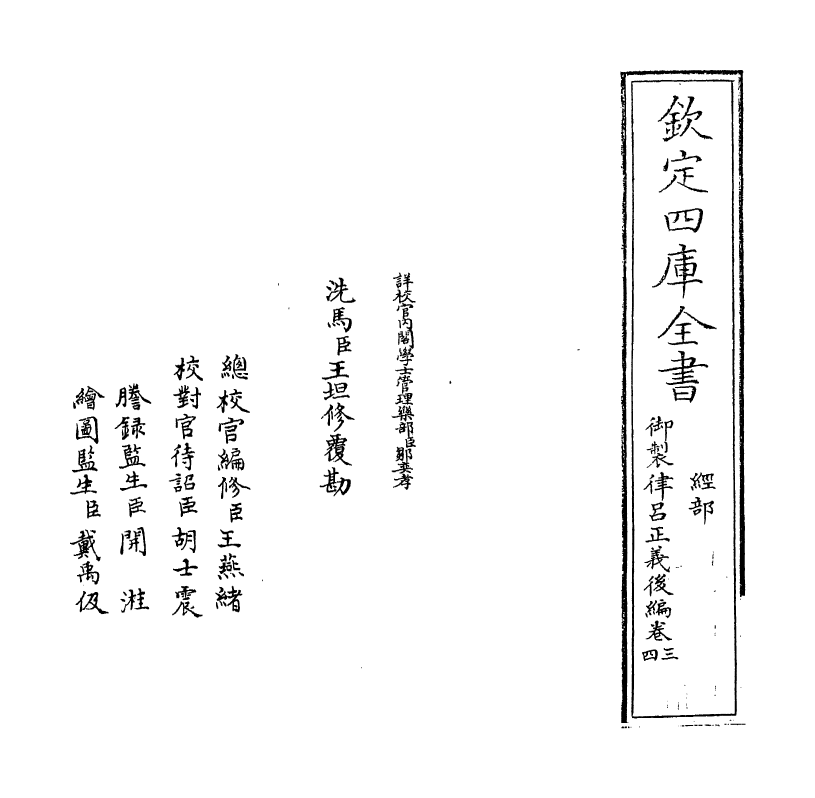 欽定四庫全書
經部
御製律呂正義後編卷三四
詳校官內閣學士管理樂部臣鄒奕孝
洗馬臣王坦修覆勘
總校官編修臣王燕緒
校對官待詔臣胡士震
謄録監生臣開溎
繪圖監生臣戴禹伋